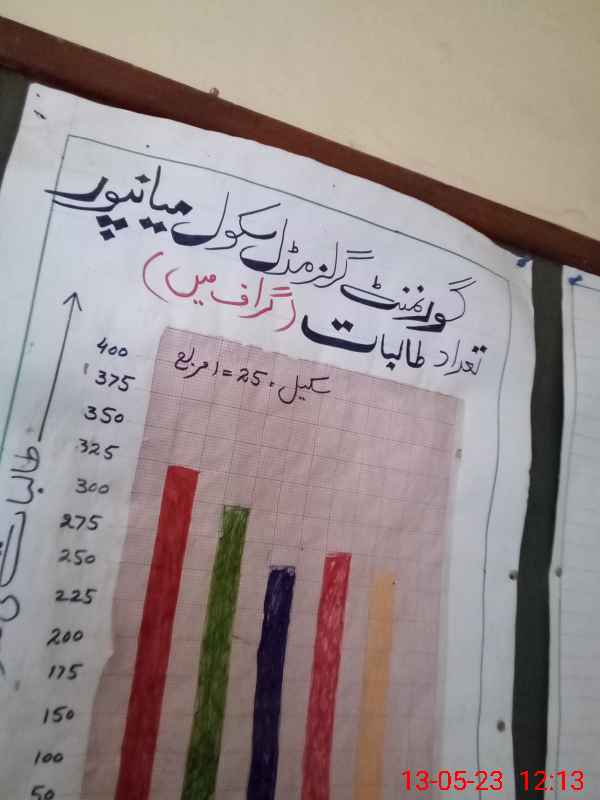 گورنمنٹ گرلز مڈل سکول میانپور
تعداد طالبات (گراف میں)
سکیل: 25 = 1 مربع
400
375
350
325
300
275
250
225
200
175
150
100
50
13-05-23 12:13